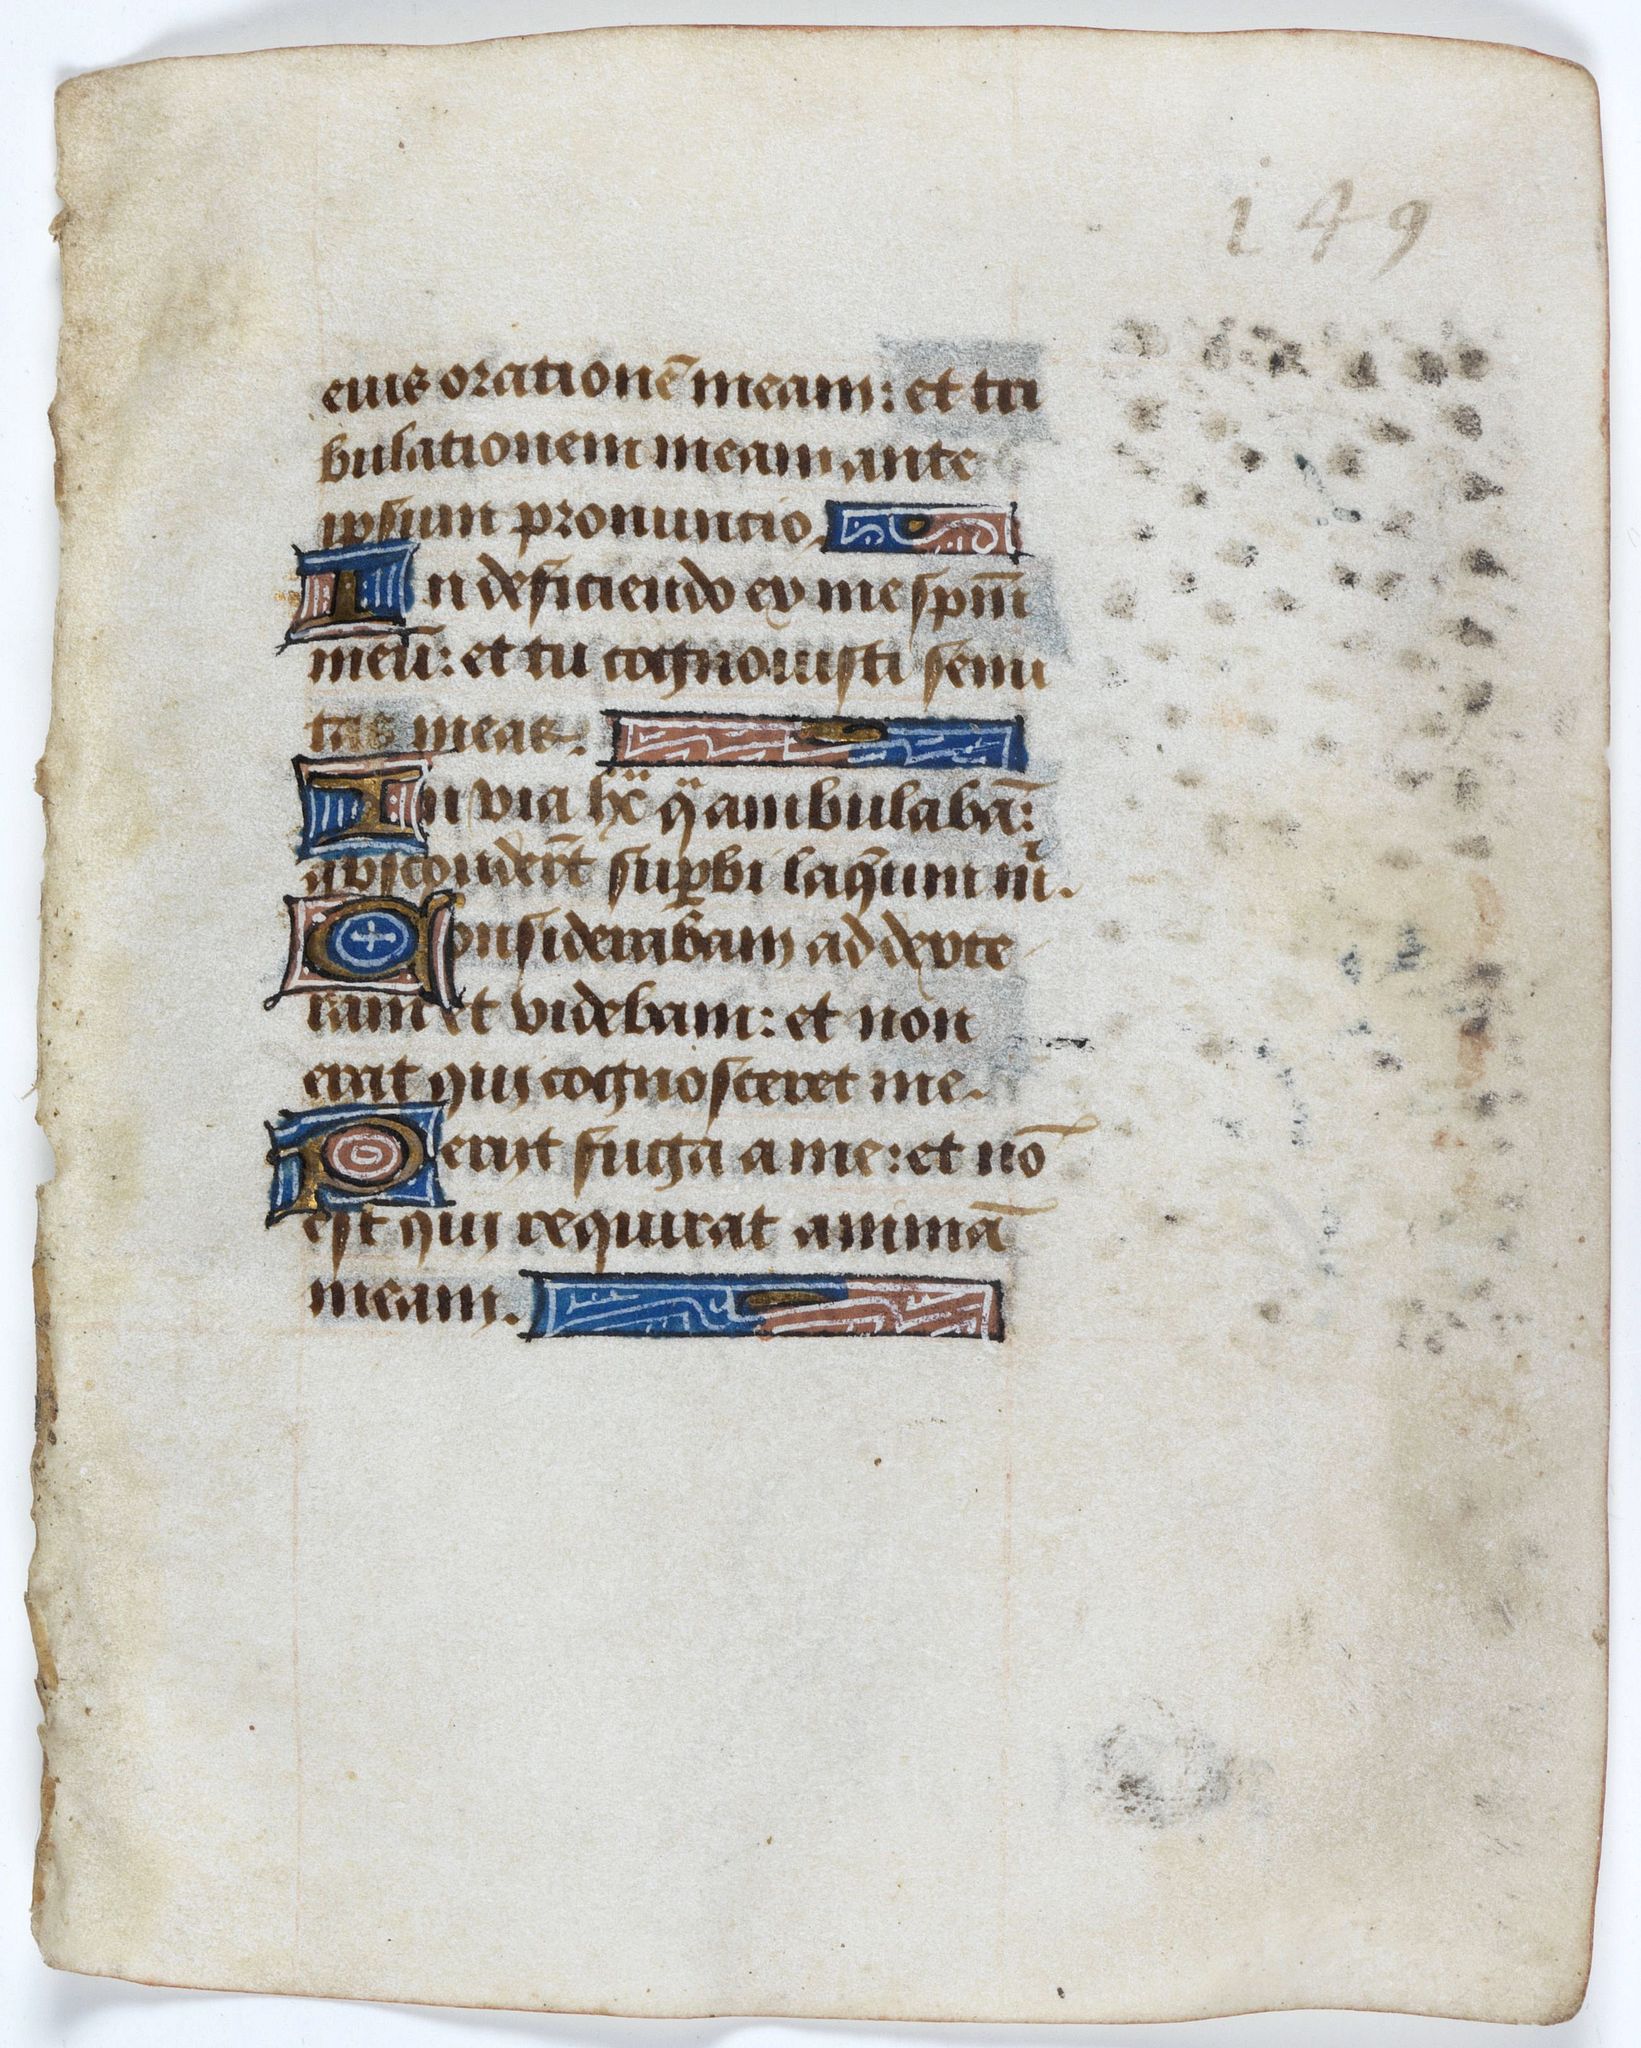 149
eius orationē meam: et tri
bulationem meam ante
ipsum pronuncio.
In deficiendo ex me sp̄m
meū: et tu cognouisti semi
tas meas.
In via hͣc qͣ ambulabā:
absconderūt suꝑbi laq̄um m̄.
Considerabam ad dexte
ram et videbam: et non
erat qui cognosceret me.
Perijt fuga a me: et nō
est qui requirat animā
meam.